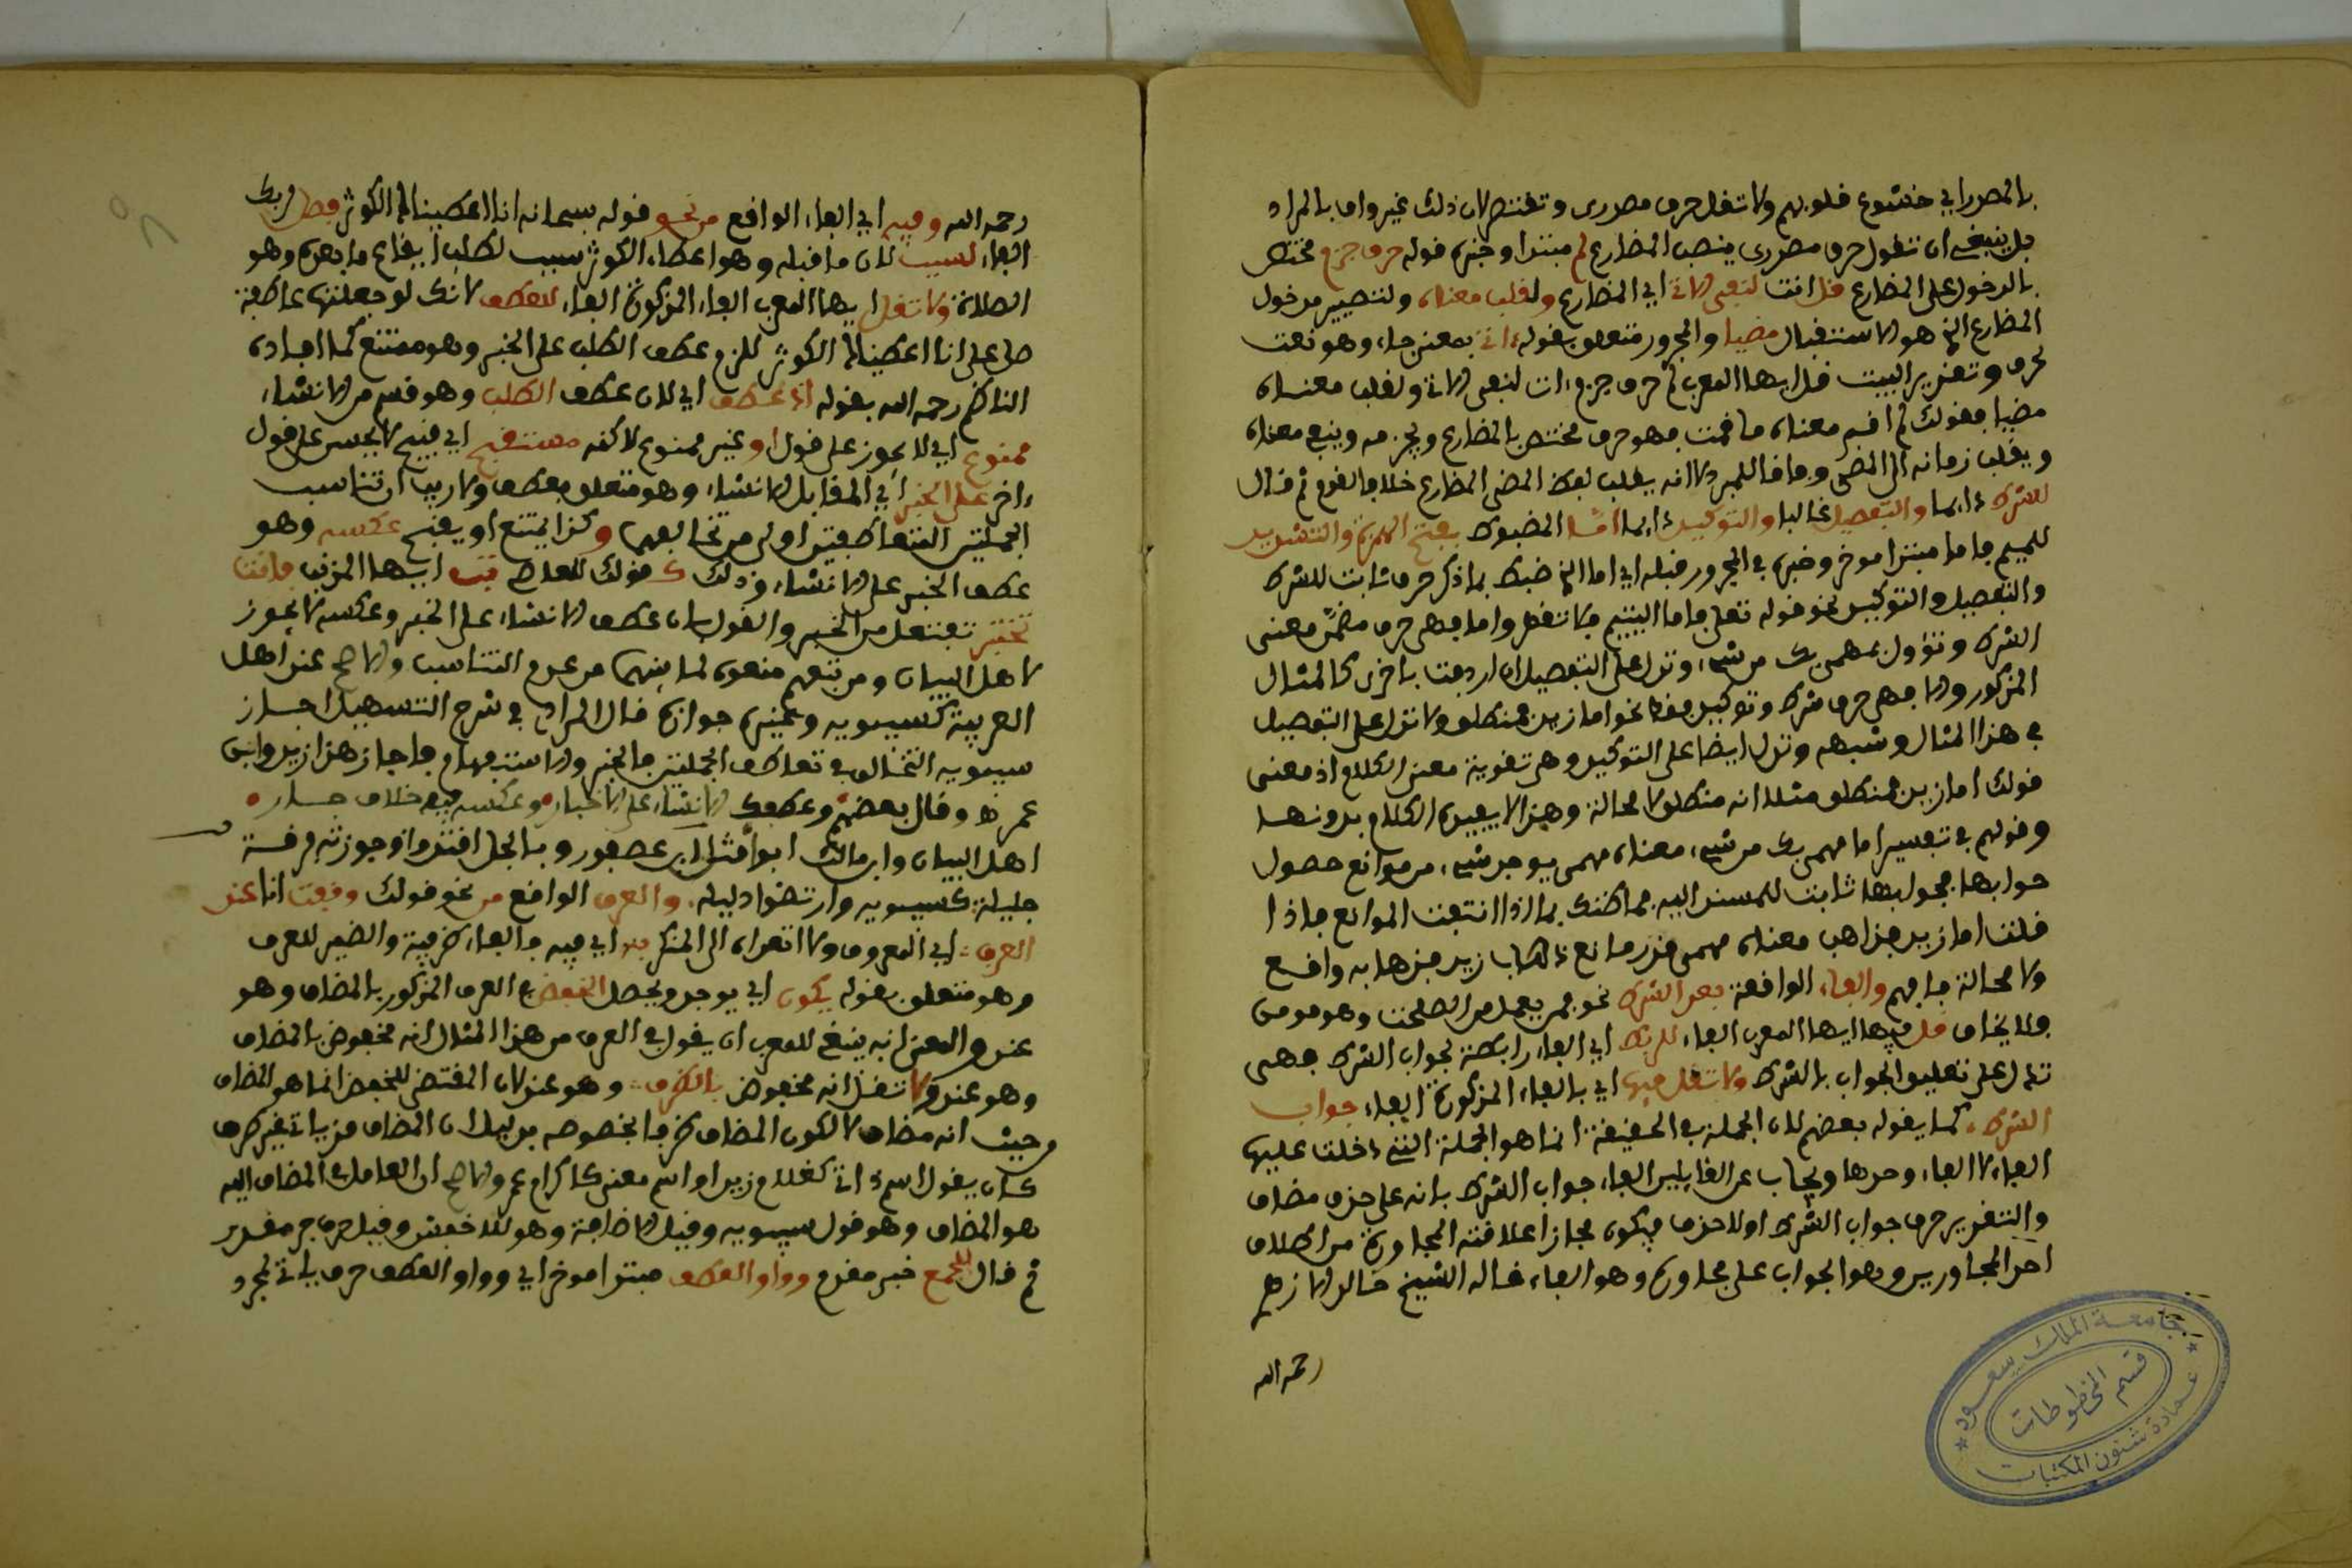 بالمصدر اي خشوع قلوبهم ولا تقل حرف مصدري وتقتصر لان ذلك غير واف بالمراد
بل ينبغي ان تقول حرف مصدري ينصب المضارع لم مبتدا وخبره قوله حرف جزم مختص
بالدخول على المضارع قل انت لنفي الاتي اي المضارع ولقلب معناه ولتصيير مدخول
المضارع الذي هو الاستقبال مضيا والمجرور متعلق بقوله اتى بمعنى جاء وهو نعت
لحرف وتقدير البيت قل ايها المعرب لم حرف جزم ات لنفي الاتي ولقلب معناه
مضيا فقولك لم اقم معناه ما قمت فهو حرف مختص بالمضارع ويجزمه وينفي معناه
ويقلب زمانه الى المضي وما قال المبرد لا انه يقلب لفظ المضي المضارع خلافا لقوم ثم قال
للشرط دايما والتفصيل غالبا والتوكيد دايما امّا المضبوط بفتح الهمزة والتشديد
للميم فاما مبتدا موخر وخبره في المجرور قبله اي اما الذي ضبط بما ذكر حرف ثابت للشرط
والتفصيل والتوكيد نحو قوله تعلى فاما اليتيم فلا تقهر واما فهي حرف مضمّن معنى
الشرط وتؤول بمهمى يك من شيء وتدل على التفصيل ان اردفت باخرى كالمثال
المذكور والا فهي حرف شرط وتوكيد فقط نحو اما زيد فمنطلق ولا تدل على التفصيل
في هذا المثال وشبهه وتدل ايضا على التوكيد وهي تقوية معنى الكلام اذ معنى
قولك اما زيد فمنطلق مثلا انه منطلق لا محالة وهذا لا يفيده الكلام بدونها
وقولهم في تفسير اما مهمى يك من شيء معناه مهمى يوجد شيء من موانع حصول
جوابها فجوابها ثابت للمسند اليه فما ظنك بما اذا انتفت الموانع فاذا
قلت اما زيد فذاهب معناه مهمى قدر مانع ذهاب زيد فذهابه واقع
ولا محالة فافهم والفاء الواقعة بعد الشرط نحو فمن يعمل من الصلحت وهو مومن
فلا يخاف قل فيها ايها المعرب الفاء للربط اي الفاء رابطة لجواب الشرط فهي
تدل على تعليق الجواب بالشرط ولا تقل فيها اي بالفاء المذكورة الفاء جواب
الشرط كما يقوله بعضهم لان الجملة في الحقيقة انما هو الجملة التي دخلت عليها
الفاء لا الفاء وحدها ويجاب عن القايلين الفاء جواب الشرط بانه على حذف مضاف
والتقدير حرف جواب الشرط اولا حذف فيكون مجازا علاقته المجاورة من اطلاق
احد المجاورين وهو الجواب على مجاوره وهو الفاء قاله الشيخ خالد الازهري
رحمه الله
جامعة الملك سعود
قسم المخطوطات
عمادة شئون المكتبات
رحمه الله وفيه اي الفاء الواقع من نحو قوله سبحانه انا اعطيناك الكوثر فصل لربك
الفاء لسبب لان ما قبله وهو اعطاء الكوثر سبب لطلب ايقاع ما بعده وهو
الصلاة ولا تقل ايها المعرب الفاء المذكورة الفاء للعطف لانك لو جعلتها عاطفة
صل على انا اعطيناك الكوثر للزم عطف الطلب على الخبر وهو ممتنع كما افاده
الناظم رحمه الله بقوله اذ عطف اي لان عطف الطلب وهو قسم من الانشاء
ممنوع اي لا يجوز على قول او غير ممنوع لاكنه مستقبح اي قبيح لا يحسن على قول
اخر على الخبر اي المقابل للانشاء وهو متعلق بعطف ولا ريب ان تناسب
الجملتين المتعاطفتين اولى من تخالفهما وكذا يمتنع او يقبح عكسه وهو
عطف الخبر على الانشاء وذلك كقولك للعاصي تب ايها المذنب فانت
تختبر تفتعل من الخبر والقول بان عطف الانشاء على الخبر وعكسه لا يجوز
لاهل البيان ومن تبعهم منعوه لما بينهما من عدم التناسب والاصح عند اهل
العربية كسيبويه وغيره جوازه قال المرادي في شرح التسهيل اجاز
سيبويه التخالف في تعاطف الجملتين بالخبر والاستفهام فاجاز هذا زيد وابن
عمرو وقال بعضهم وعطفك الانشاء على الاخبار وعكسه فيه خلاف جار
اهل البيان وابن مالك ابوا مثل ابن عصفور وبالجل اقتدوا وجوزته فرقة
جليلة كسيبويه وارتضوا دليله والعرف الواقع من نحو قولك وقعت انا عند
العرف اي المعروف ولا اتعداه الى المنكر به اي فيه فالفاء ظرفية والضمير للعرف
وهو متعلق بقوله يكون اي يوجد ويحصل الخفض في العرف المذكور بالمضاف وهو
عند والمعنى انه ينبغي للمعرب ان يقول في العرف من هذا المثال انه مخفوض بالمضاف
وهو عند ولا تقل انه مخفوض بالظرف وهو عند لان المقتضي للخفض انما هو المضاف
من حيث انه مضاف لا لكون المضاف ظرفا بخصوصه بدليل ان المضاف قد ياتي غير ظرف
كان يقول اسم ذات كغلام زيد او اسم معنى كاكرام عمرو والاصح ان العامل في المضاف اليه
هو المضاف وهو قول سيبويه وقيل الاضافة وهو للاخفش وقيل حرف جر مقدر
ثم قال للجمع خبر مقدم وواو العطف مبتدا موخر اي وواو العطف حرف ياتي لمجرد